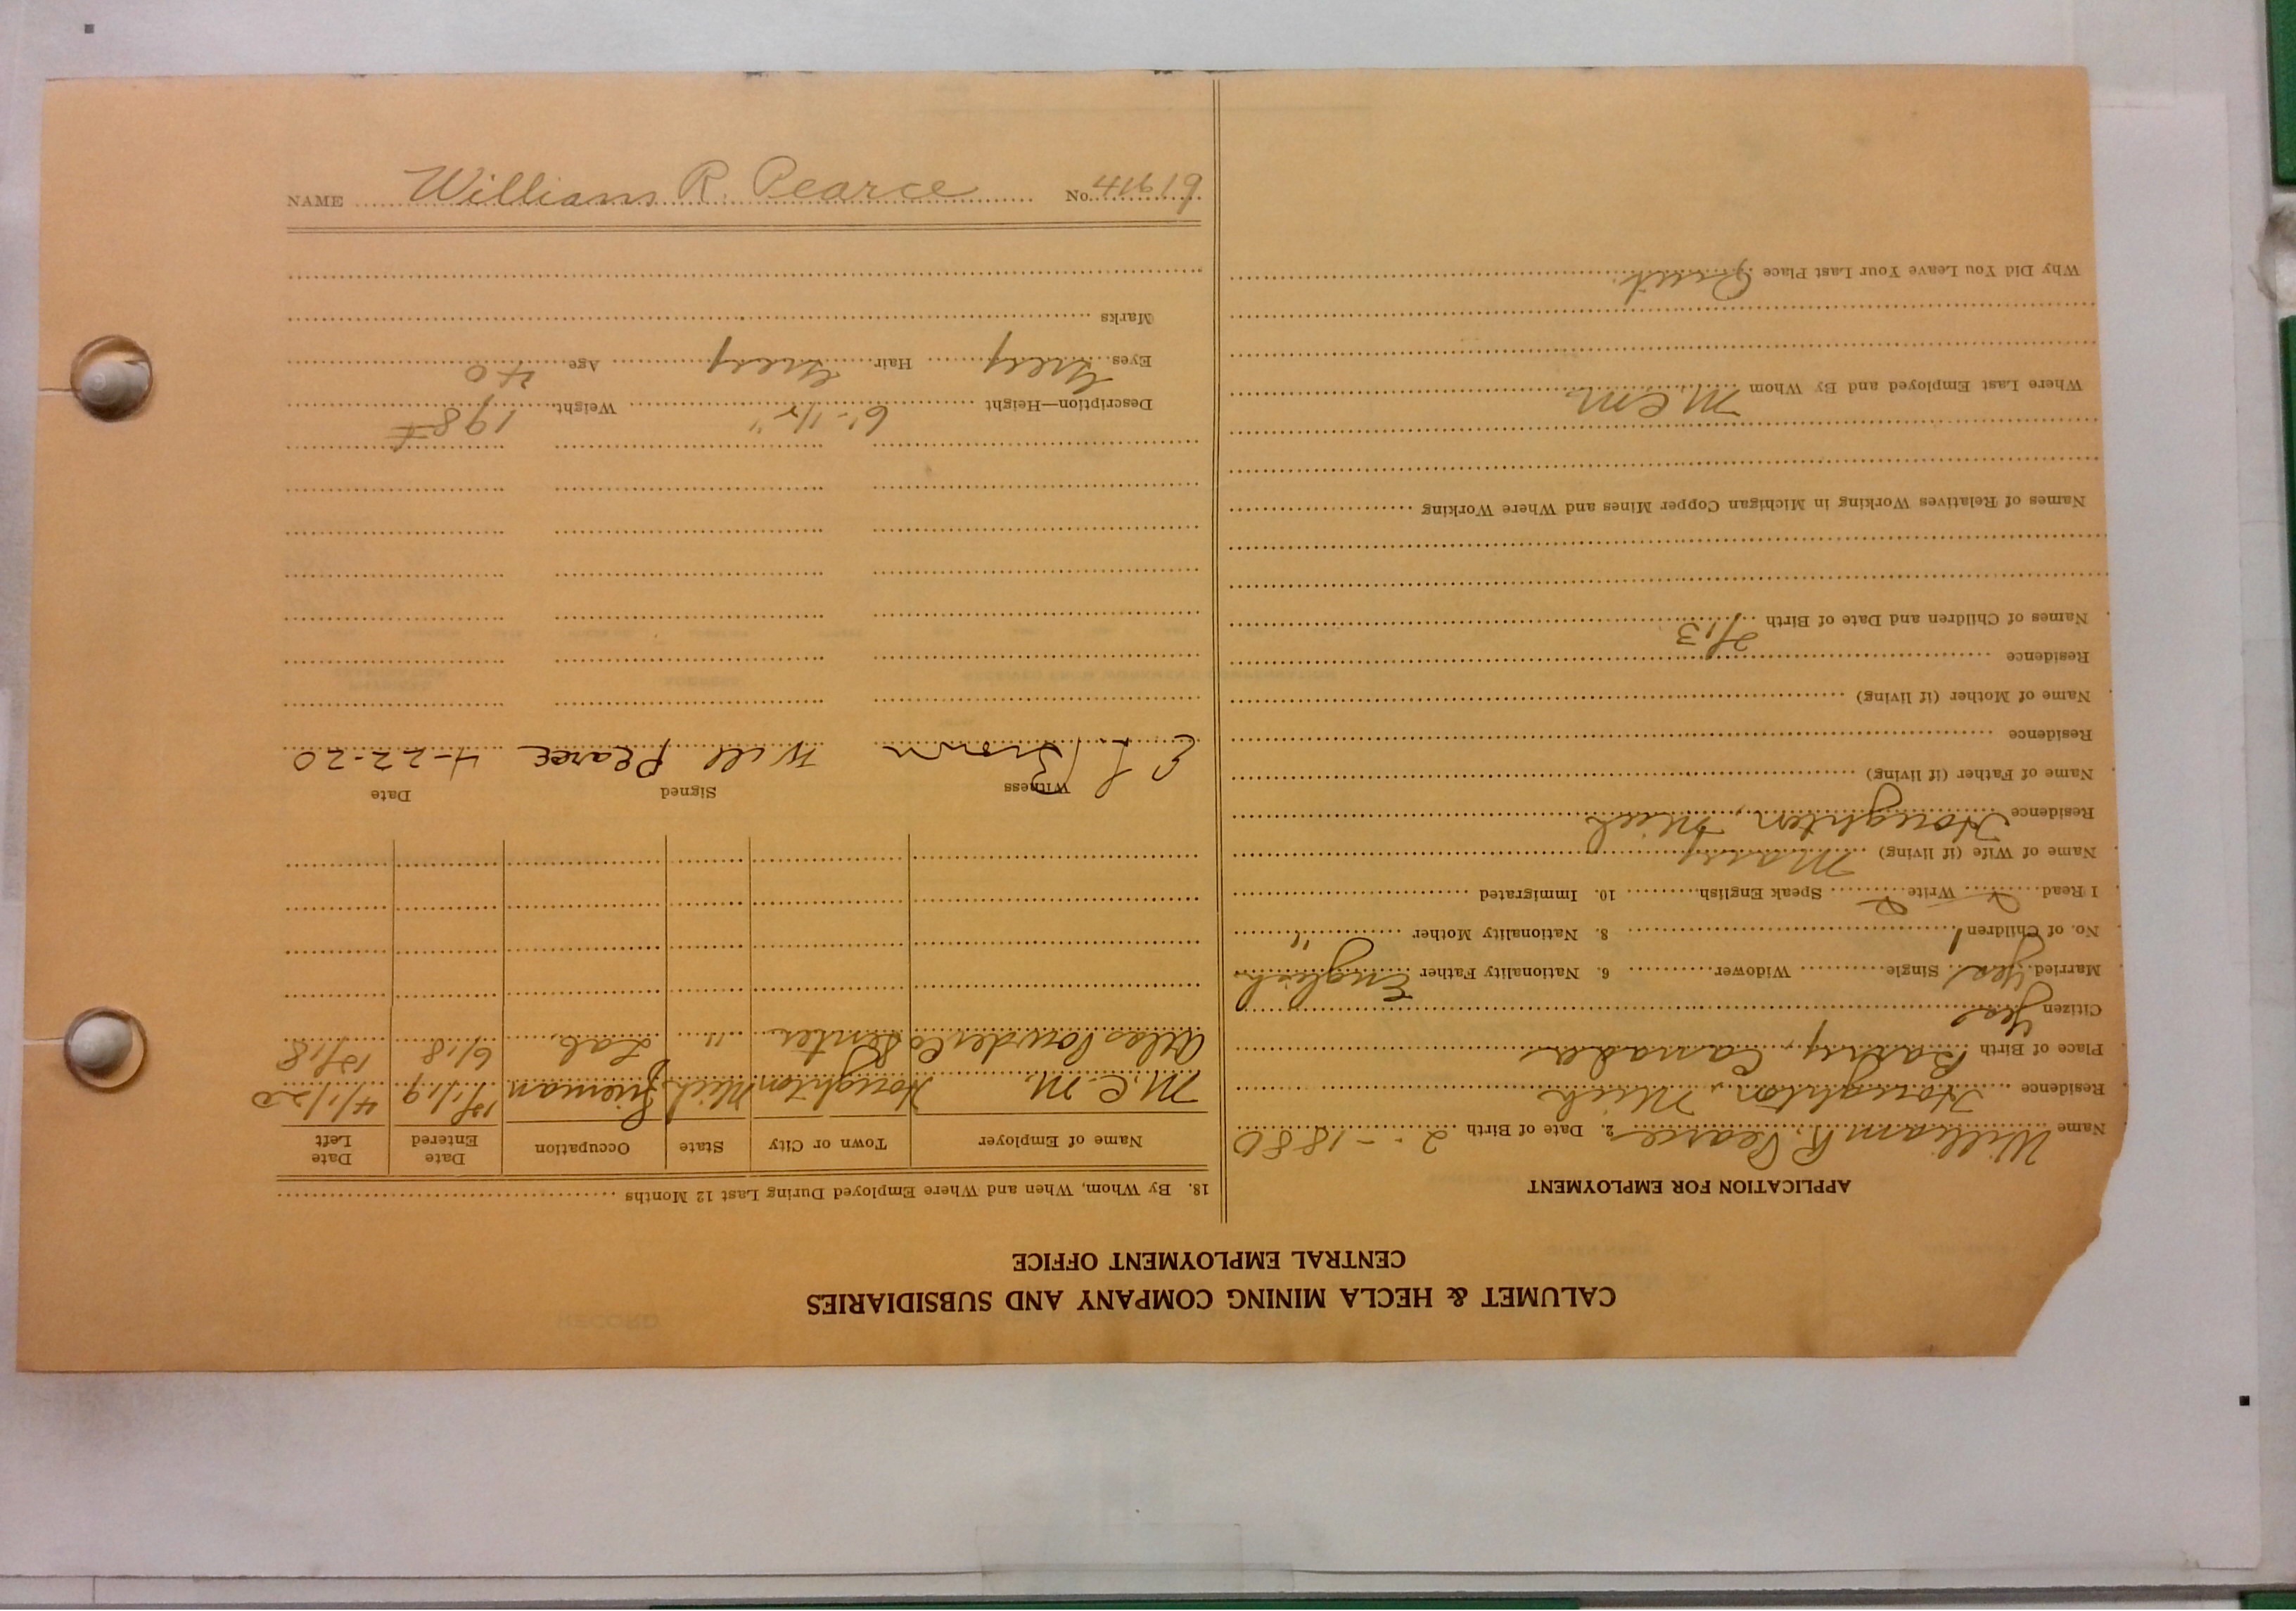 CALUMET & HECLA MINING COMPANY AND SUBSIDIARIES
CENTRAL EMPLOYMENT OFFICE
APPLICATION FOR EMPLOYMENT
Name William R. Pearce 2. Date of Birth 2 - 1880
Residence Houghton, Mich
Place of Birth Canada
Citizen Yes
Married Yes Single Widower 6. Nationality Father English
No. of Children 1 8. Nationality Mother "
I Read Write Speak English 10. Immigrated
Name of Wife (if living) Mary
Residence Houghton, Mich
Name of Father (if living)
Residence
Name of Mother (if living)
Residence
Names of Children and Date of Birth
Names of Relatives Working in Michigan Copper Mines and Where Working
Where Last Employed and By Whom M C M
Why Did You Leave Your Last Place Quit
18. By Whom, When and Where Employed During Last 12 Months
Name of Employer Town or City State Occupation Date Entered Date Left
M. C. M. Houghton Mich Fireman 12/1/19 4/1/20
Atlas Powder Co Senter " Lab. 6/18 12/18
Witness Signed Date
E. L. Brown Will Pearce 4-22-20
Description—Height 6'-1½" Weight 198#
Eyes Grey Hair Grey Age 40
Marks
NAME William R. Pearce No. 41619